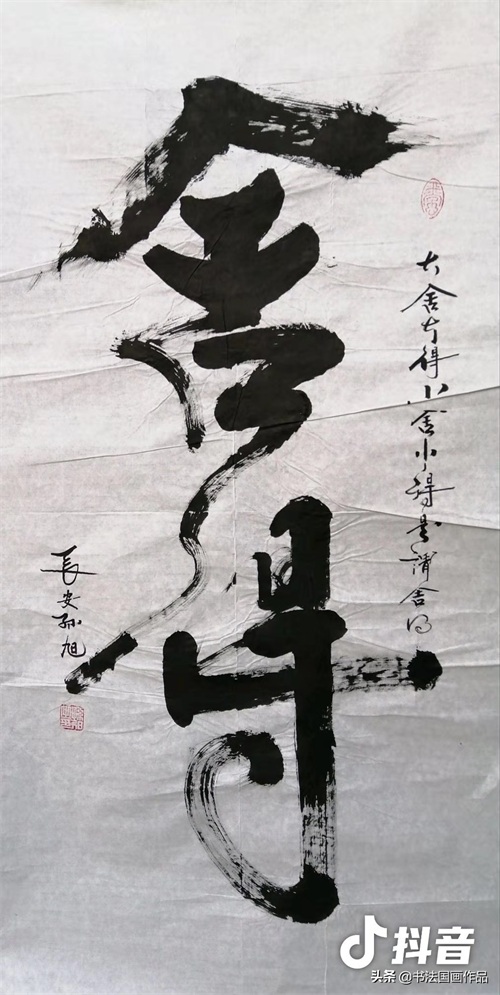 舍得
大舍大得小舍小得是谓舍得
長安孙旭
抖音
头条 @书法国画作品